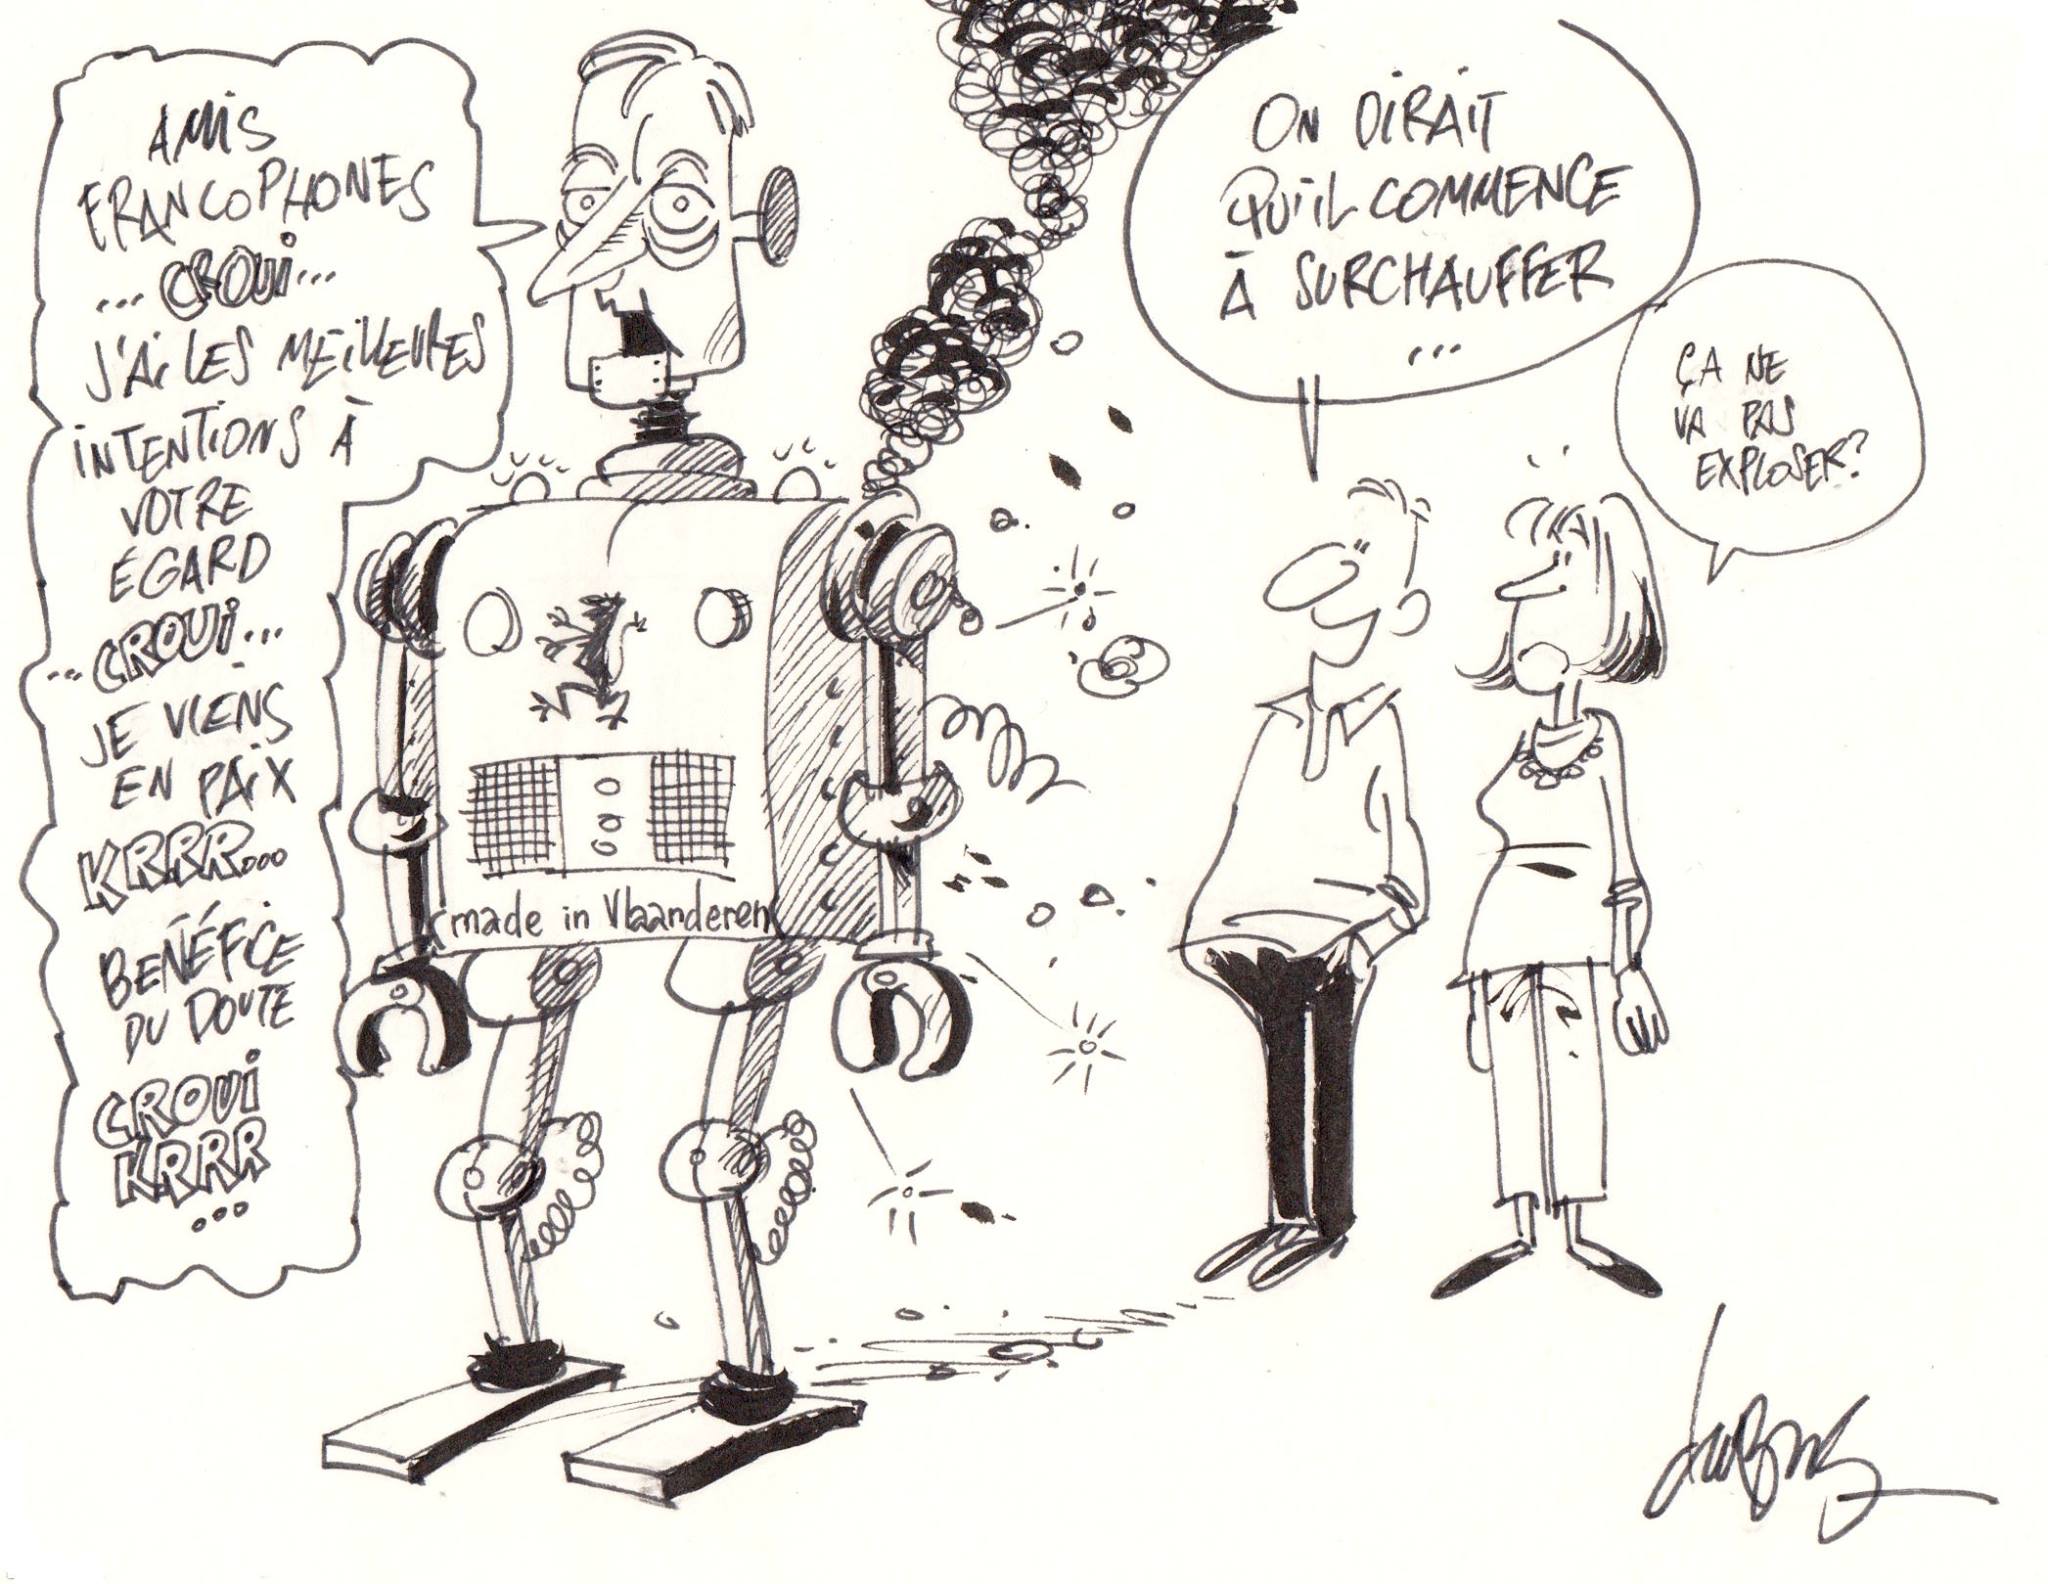 AMIS
FRANCOPHONES
... CROUI...
J'AI LES MEILLEURES
INTENTIONS À
VOTRE
ÉGARD
... CROUI...
JE VIENS
EN PAIX
KRRR...
BENÉFICE
DU DOUTE
CROUI
KRRR
...
ON DIRAIT
QU'IL COMMENCE
À SURCHAUFFER
...
ÇA NE
VA PAS
EXPLOSER?
made in Vlaanderen